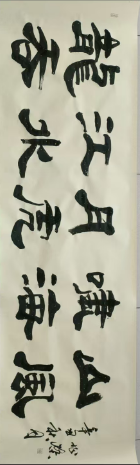 龍吞
江水
月虎
嘯海
山風